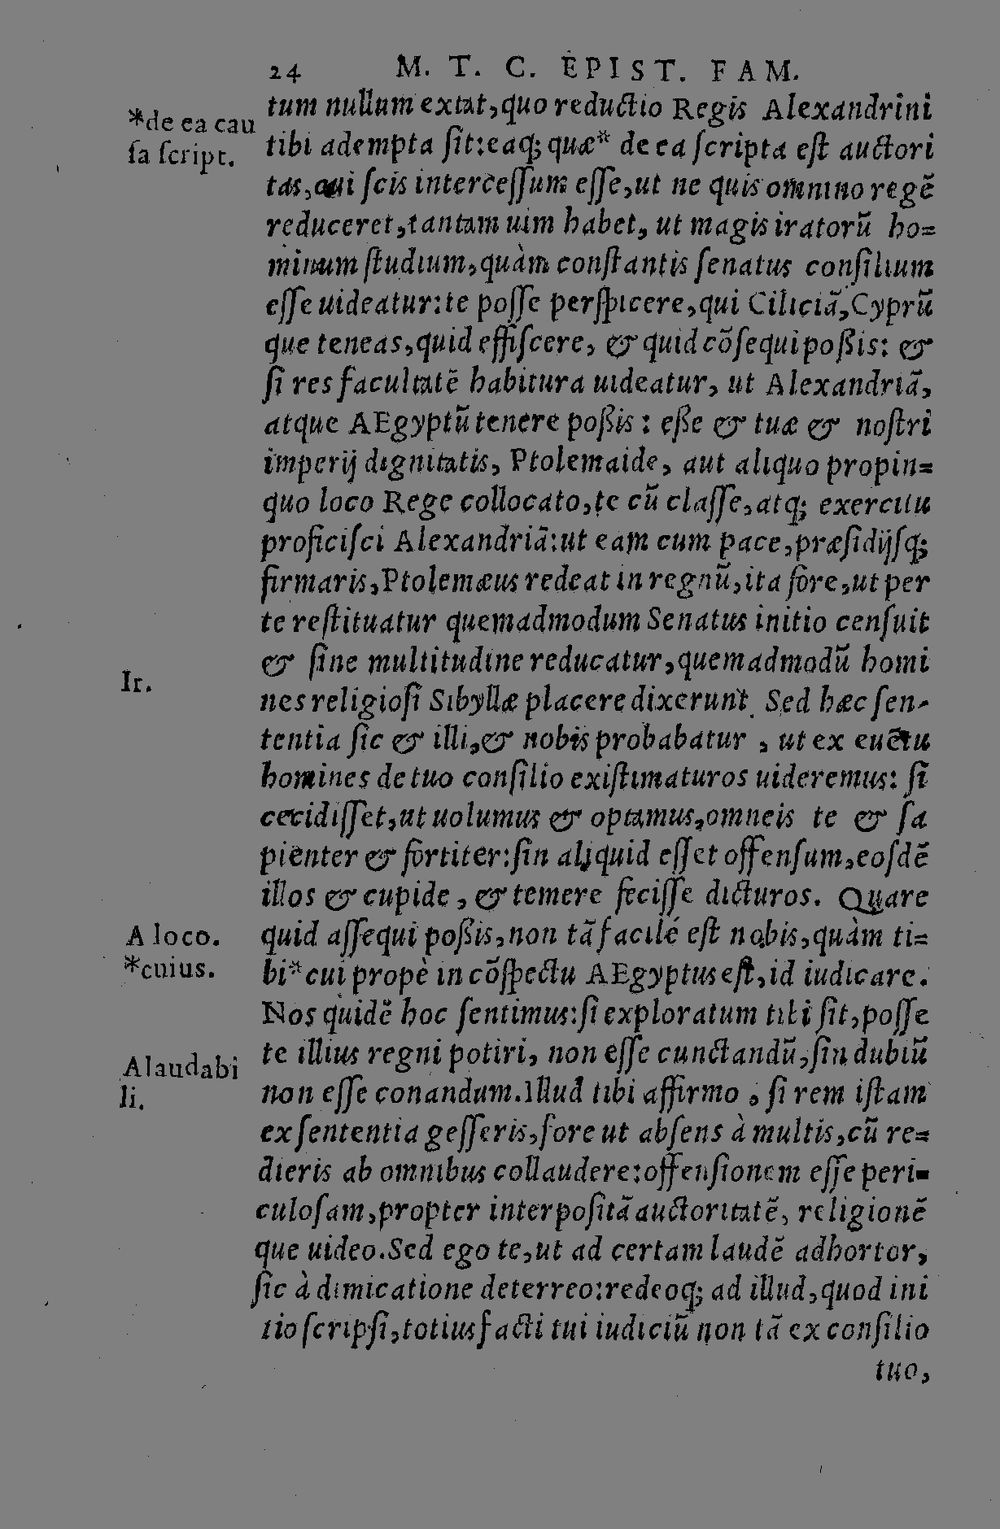 24 M. T. C. EPIST. FAM.
tum nullum extat, quo reductio Regis Alexandrini
*de ea cau
sa script.
tibi adempta sit: eaq; quæ* de ea scripta est auctori
tas, cui scis intercessum esse, ut ne quis omnino regē
reduceret, tantam uim habet, ut magis iratorū ho=
minum studium, quàm constantis senatus consilium
esse uideatur: te posse perspicere, qui Ciliciā, Cyprū
que teneas, quid efficere, & quid cōsequi possis: &
si res facultatē habitura uideatur, ut Alexandriā,
atque AEgyptū tenere possis: esse & tuæ & nostri
imperij dignitatis, Ptolemaide, aut aliquo propin=
quo loco Rege collocato, te cū classe, atq; exercitu
proficisci Alexandriā: ut eam cum pace, præsidijsq;
firmaris, Ptolemæus redeat in regnū, ita fore, ut per
te restituatur quemadmodum Senatus initio censuit
& sine multitudine reducatur, quemadmodū homi
Ir.
nes religiosi Sibyllæ placere dixerunt. Sed hæc sen-
tentia sic & illi, & nobis probabatur, ut ex euētu
homines de tuo consilio existimaturos uideremus: si
cecidisset, ut uolumus & optamus, omneis te & sa
pienter & fortiter: sin aliquid esset offensum, eosdē
illos & cupide, & temere fecisse dicturos. Quare
A loco.
quid assequi possis, non tā facile est nobis, quàm ti=
*cuius.
bi* cui propè in cōspectu AEgyptus est, id iudicare.
Nos quidē hoc sentimus: si exploratum tibi sit, posse
te illius regni potiri, non esse cunctandū, sin dubiū
Alaudabi
li.
non esse conandum. Illud tibi affirmo, si rem istam
ex sententia gesseris, fore ut absens à multis, cū re=
dieris ab omnibus collaudere: offensionem esse peri=
culosam, propter interpositā auctoritatē, religionē
que uideo. Sed ego te, ut ad certam laudē adhortor,
sic à dimicatione deterreo: redeoq; ad illud, quod ini
tio scripsi, totius facti tui iudiciū non tā ex consilio
tuo,